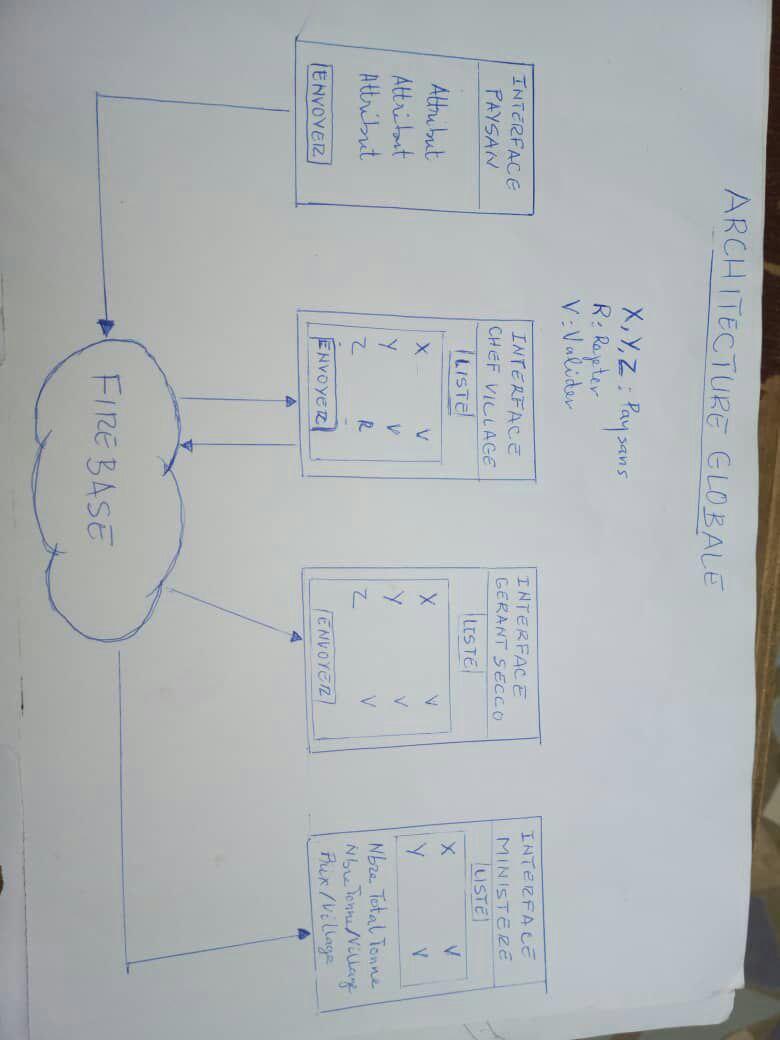 ARCHITECTURE GLOBALE
X, Y, Z : Paysans
R : Rejeter
V : Valider
INTERFACE
PAYSAN
Attribut
Attribut
Attribut
ENVOYER
INTERFACE
CHEF VILLAGE
LISTE
X V
Y V
Z R
ENVOYER
INTERFACE
GERANT SECCO
LISTE
X V
Y V
Z V
ENVOYER
INTERFACE
MINISTERE
LISTE
X V
Y V
Nbre Total Tonne
Nbre Tonne/Village
Prix/Village
FIREBASE